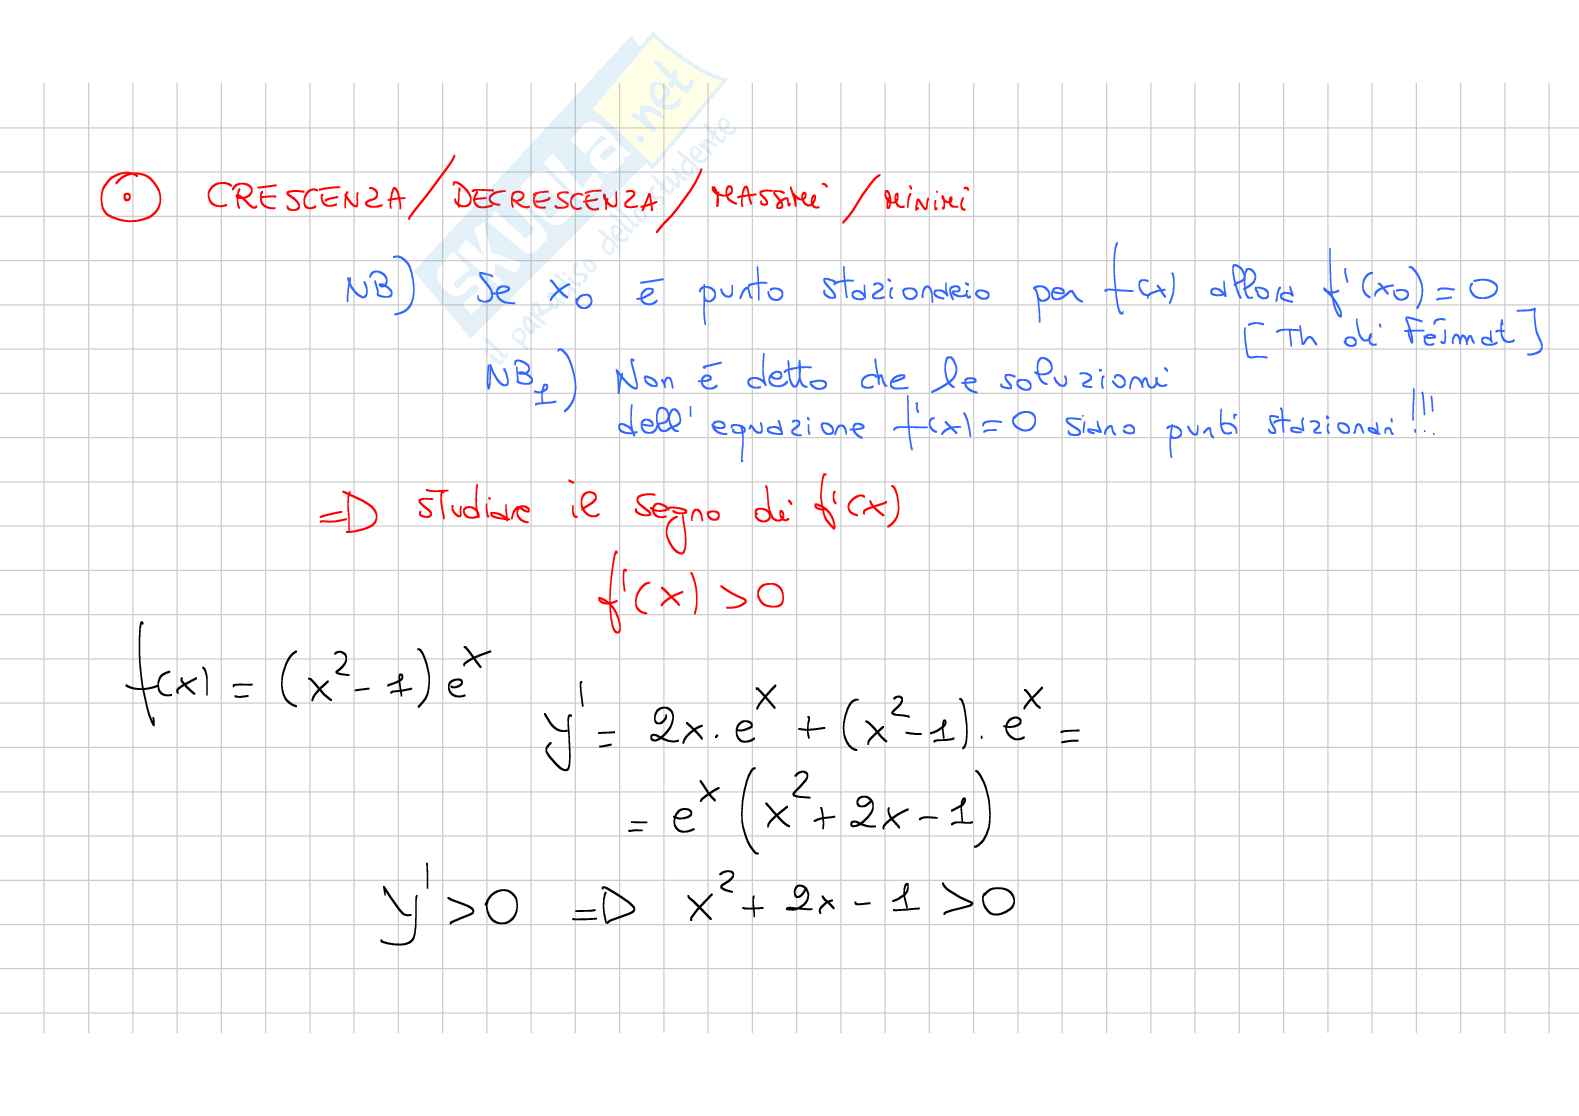 SKUOLA.net
il paradiso dello studente
⊙ CRESCENZA/DECRESCENZA/MASSIMI/MINIMI
NB) Se x₀ è punto stazionario per f(x) allora f'(x₀) = 0
[Th di Fermat]
NB₁) Non è detto che le soluzioni
dell'equazione f'(x) = 0 siano punti stazionari!!!
=D studiare il segno di f'(x)
f'(x) > 0
f(x) = (x² - 1) eˣ
y' = 2x · eˣ + (x² - 1) · eˣ =
= eˣ (x² + 2x - 1)
y' > 0 =D x² + 2x - 1 > 0